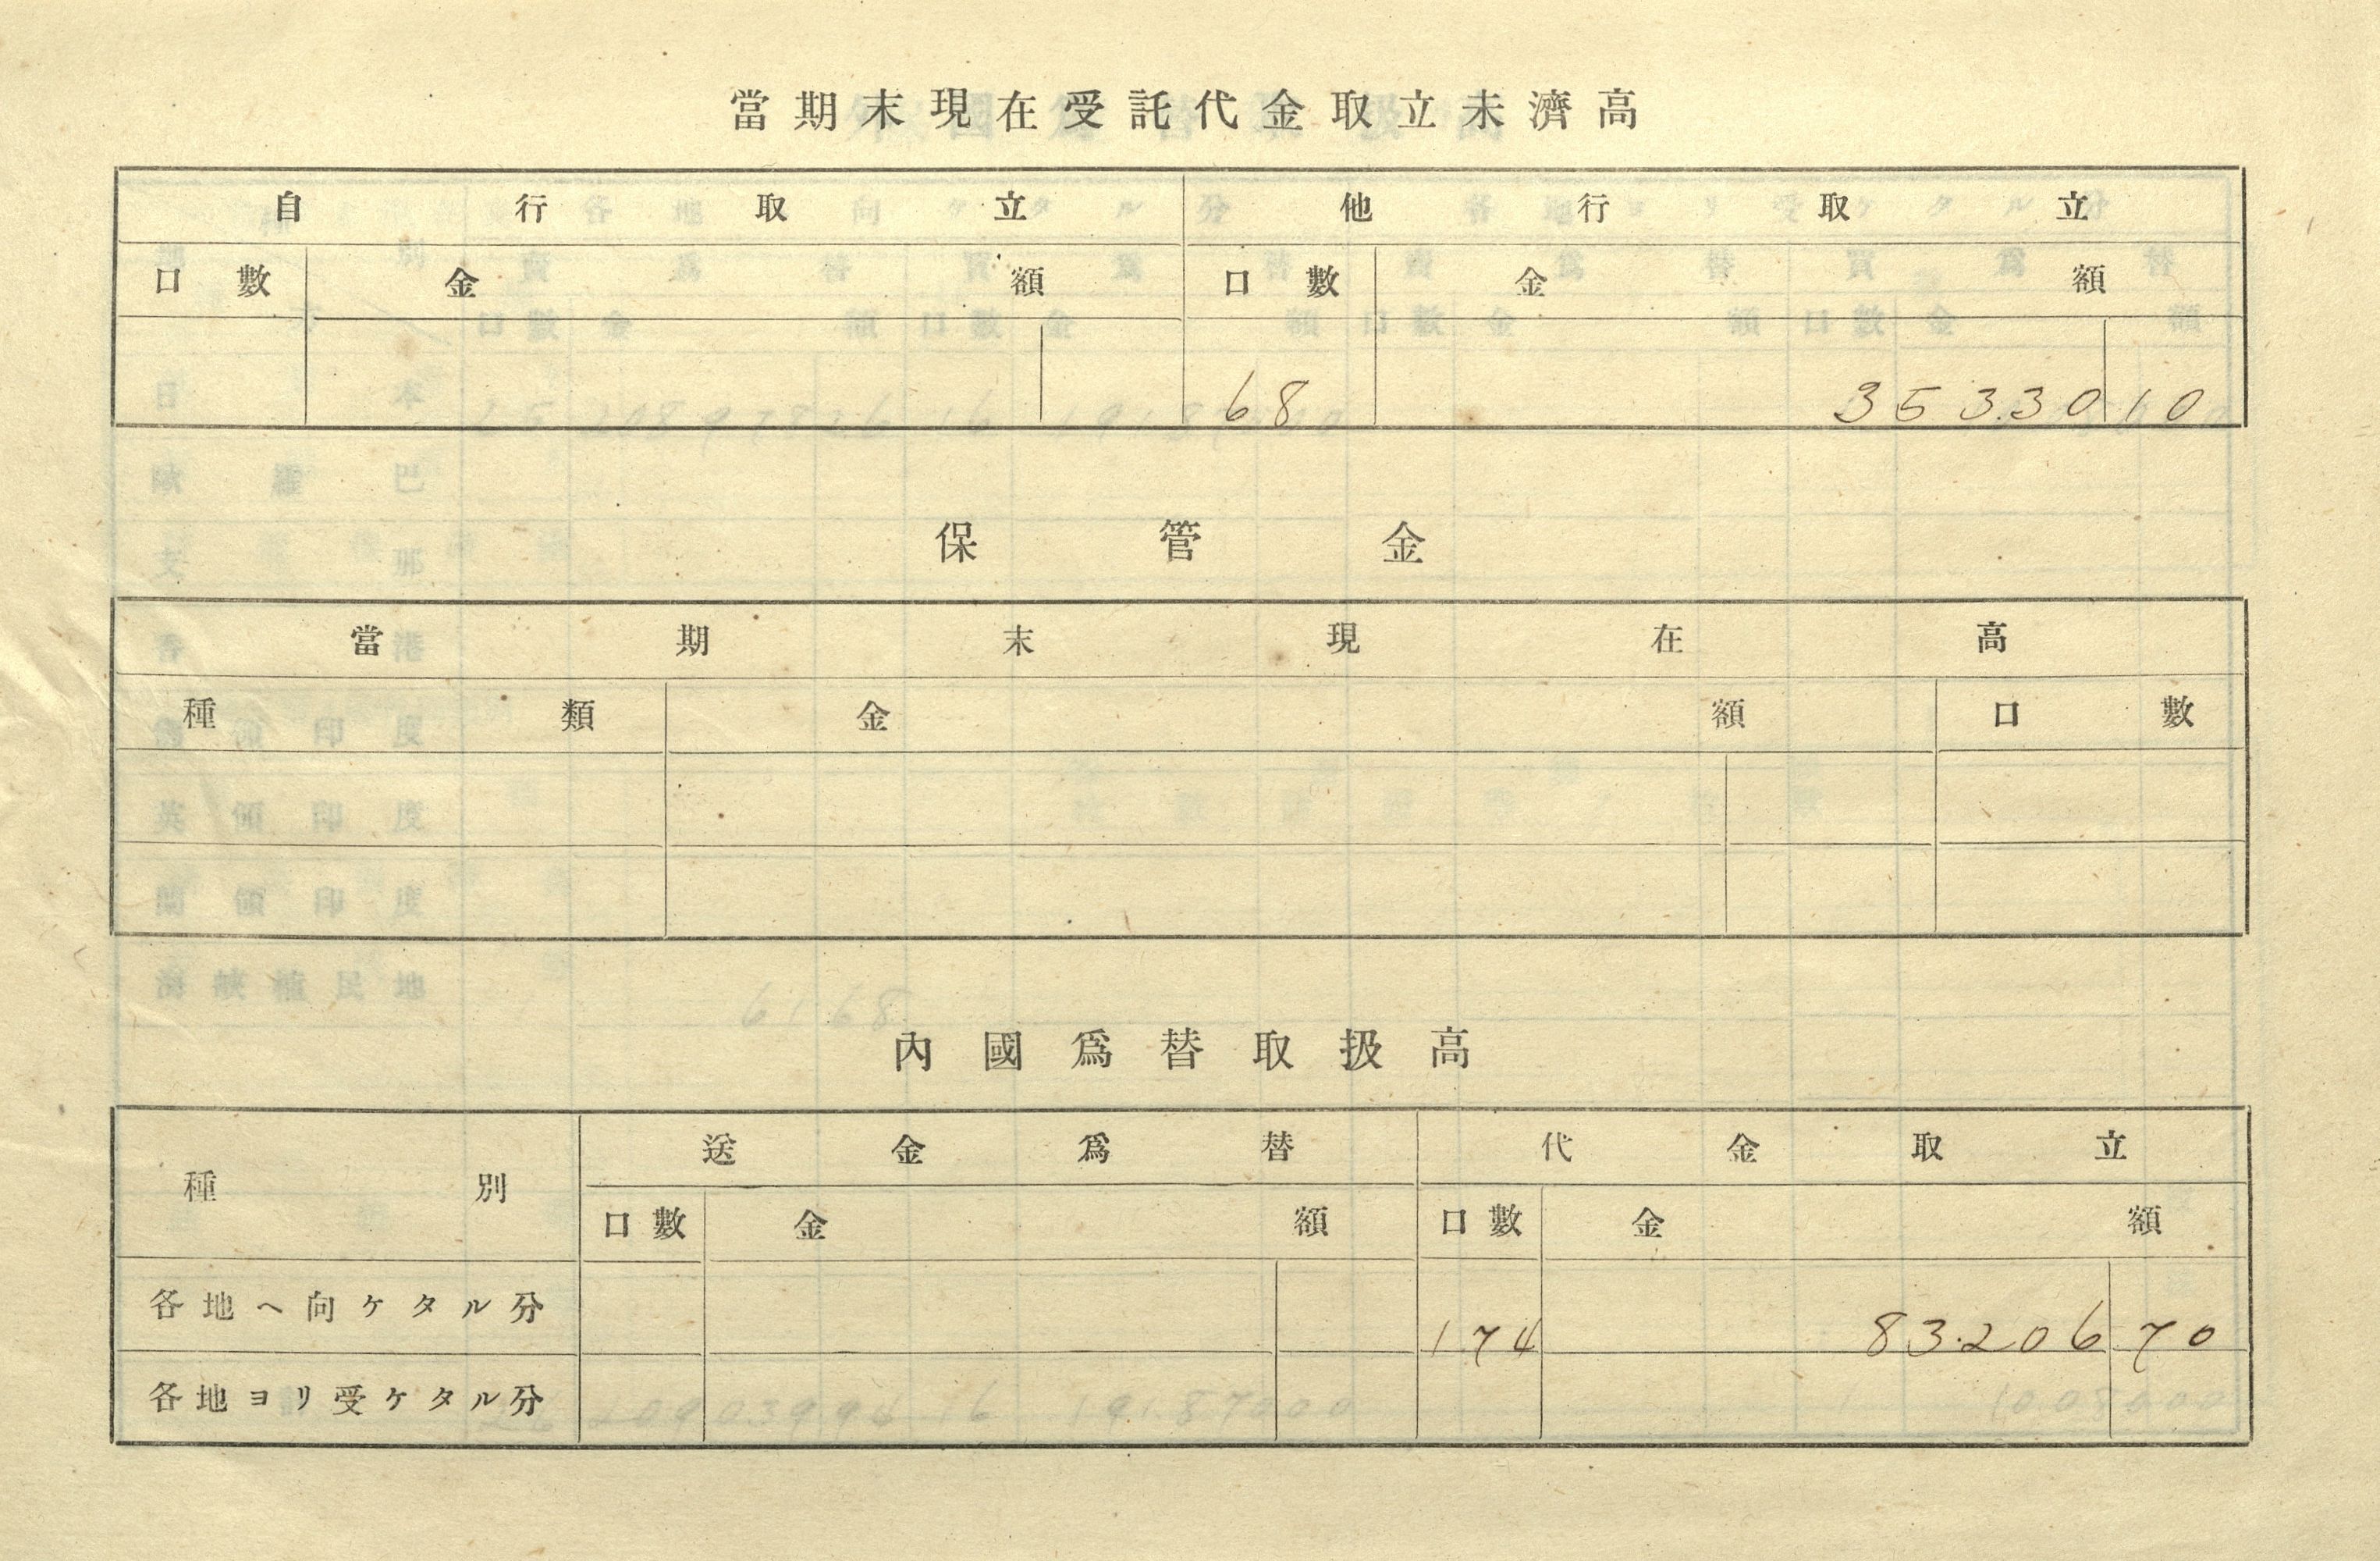 當期末現在受託代金取立未濟高
自行取立 他行取立
口數 金額 口數 金額
68 353.30 10
保管金
當期末現在高
種類 金額 口數
內國爲替取扱高
種別 送金爲替 代金取立
口數 金額 口數 金額
各地ヘ向ケタル分 174 83.206 70
各地ヨリ受ケタル分